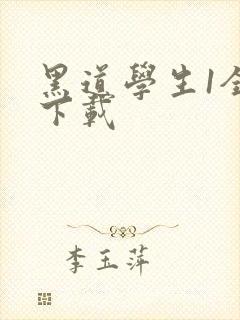 黑道學生1全
下載
李玉萍